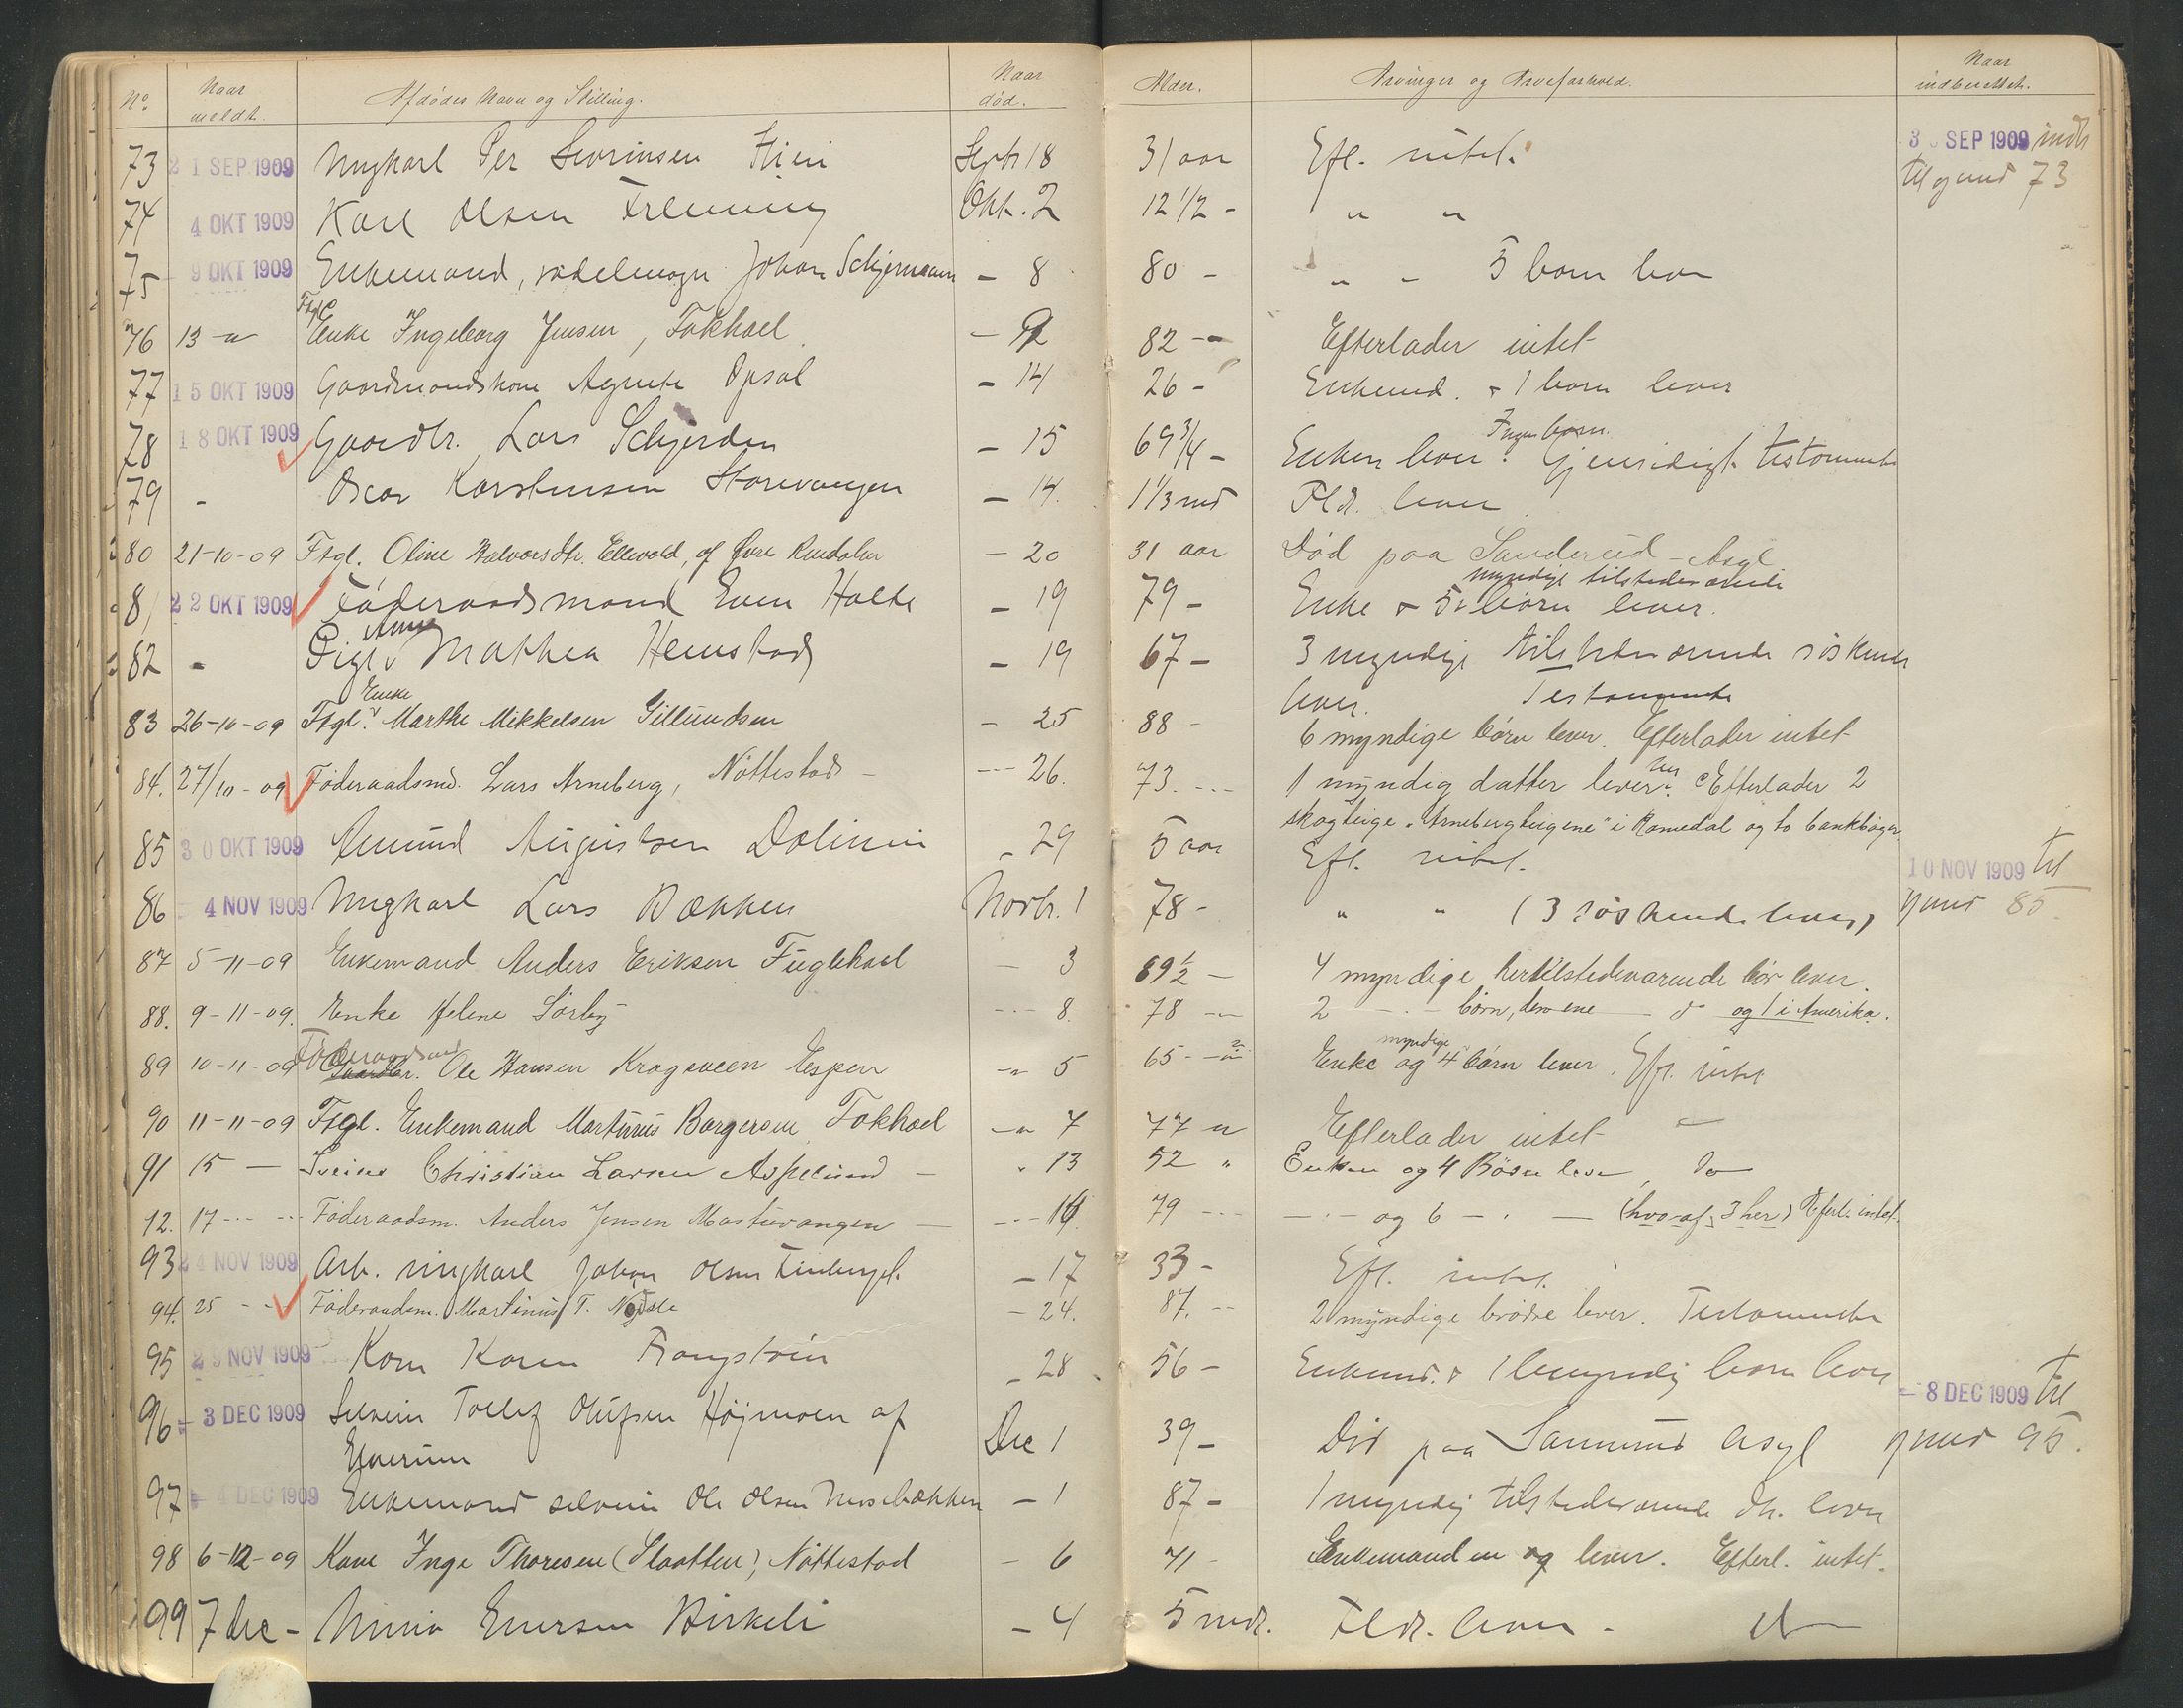 No. Naar meldt. Afdødes Navn og Stilling. Naar død. Alder. Arvinger og Arveforhold. Naar indberettet.
73 21 SEP 1909 Ungkarl Per Sevrinsen Septr 18 31 aar Efl. intet. 30 SEP 1909 indb
til og med 73
74 4 OKT 1909 Karl Olsen Okt. 2 12 1/2 - " "
75 9 OKT 1909 Enkemand, sadelmager Johan Schjermann - 8 80 - " - 5 børn lever
76 13 - " Fsgl Enke Ingeborg Jensen, Fokhoel - 12 82 - Efterlader intet
77 15 OKT 1909 Gaardmandskone Agnete Opsal - 14 26 - Enkemd. + 1 barn lever
78 18 OKT 1909 Gaardbr. Lars Schjerden - 15 69 3/4 - Enken lever. Ingen børn. Gjensidigt testamente
79 - Oscar Karstensen Storevangen - 14. 1 1/3 md Fldr. lever
80 21-10-09 Fsgl. Oline Halvorsdtr. Ellevold, af Øvre Rendalen - 20 31 aar Død paa Sanderud Asyl
81 22 OKT 1909 Føderaadsmand Even Holte - 19 79 - Enke + 5 myndige tilstedeværende børn lever.
82 - Pige Anne Mathea Hemstad - 19 67 - 3 myndige tilstedeværende søskende
lever. Testamente
83 26-10-09 Fsgl. Enke Marthe Mikkelsen Gillundsen - 25 88 - 6 myndige børn lever. Efterlader intet
84. 27/10-09 Føderaadsmd. Lars Arneberg, Nøttestad - 26. 73. 1 myndig datter lever her. Efterlader 2
skogteige "Arnebergteigene" i Romedal og to bankbøger
85 30 OKT 1909 Amund Augustsen Dolimoen - 29 5 aar Efl. intet. 10 NOV 1909 til
86 4 NOV 1909 Ungkarl Lars Bækken Novbr. 1 78 - " " (3 søskende lever) og med 85.
87 5-11-09 Enkemand Anders Eriksen Fuglehoel - 3 69 1/2 - 4 myndige hertilstedeværende bør lever.
88. 9-11-09. Enke Helene Sørby - 8. 78 - 2 - børn, den ene - og 1 i Amerika.
89 10-11-09 Føderaadsmd Gaardbr. Ole Hansen Kragsveen Espen - 5 65 - Enke og 4 myndige børn lever. Efl. intet
90 11-11-09 Fsgl. Enkemand Martinus Borgersen Fokhoel - 7 77 " Efterlader intet
91 15 - Christian Larsen Aspelund - " 13 52 " Enken og 4 Børn lever, do
12. 17 - Føderaadsm. Anders Jensen Mostuvangen - 14. 79 - - og 6 - (hvoraf 3 her) Efterl. intet.
93 24 NOV 1909 Arb. ungkarl Johan Olsen - 17 33 - Efl. intet.
94. 25 - Føderaadsm. Martinus T. - 24. 87. - 2 myndige brødre lever. Testamente
95 29 NOV 1909 Kone Karen - 28 56 - Enkemd. + 1 umyndig barn lever 8 DEC 1909 til
96 3 DEC 1909 Selveier Tollef Olufsen Højmoen af Dec 1 39 - Død paa Asyl og med 95.
Elverum
97 4 DEC 1909 Enkemand selveier Ole Olsen Mosebækken - 1 87 - 1 myndig tilstedeværende dtr. lever
98 6-12-09 Kone Inge Thoresen (Slaatten), Nøttestad - 6 71 - Enkemanden og lever. Efterl. intet.
99 7 dec - Einersen Birkeli - 4 5 mdr. Fldr. lever -